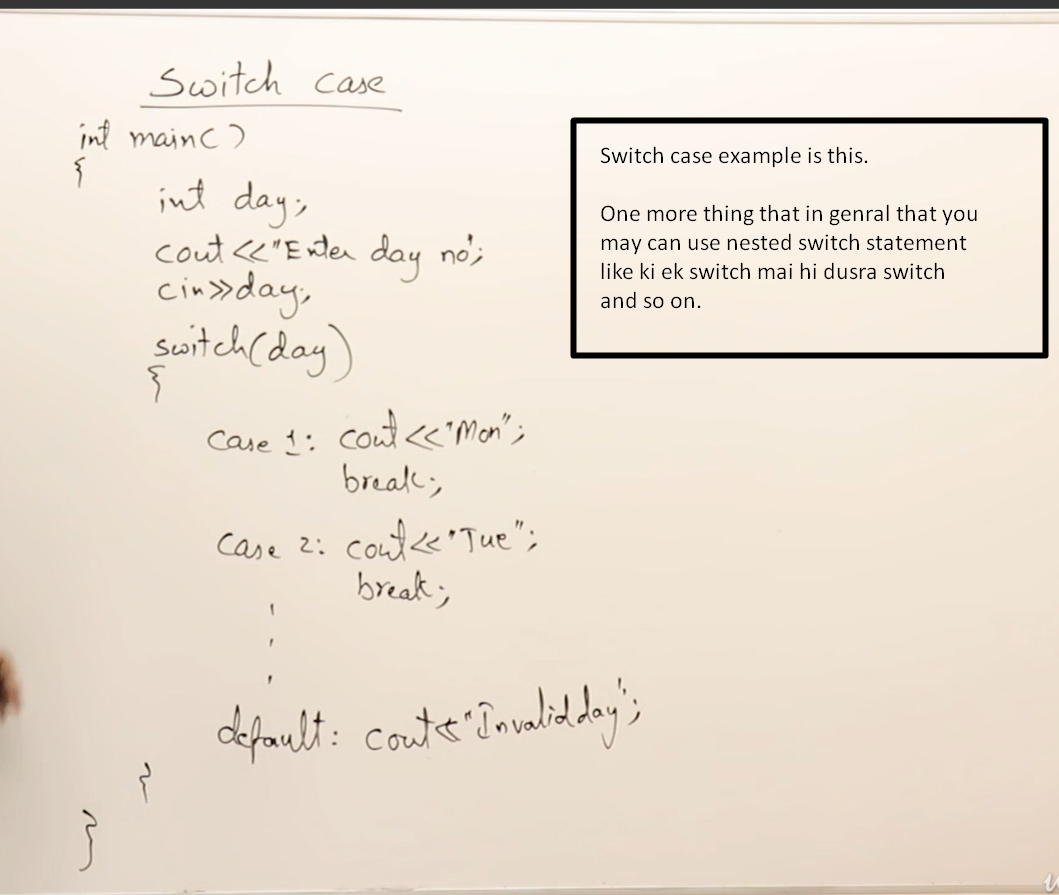 Switch case
int main()
{
int day;
cout<<"Enter day no";
cin>>day;
switch(day)
{
case 1: cout<<"Mon";
break;
case 2: cout<<"Tue";
break;
default: cout<<"Invalid day";
}
}
Switch case example is this.
One more thing that in genral that you
may can use nested switch statement
like ki ek switch mai hi dusra switch
and so on.